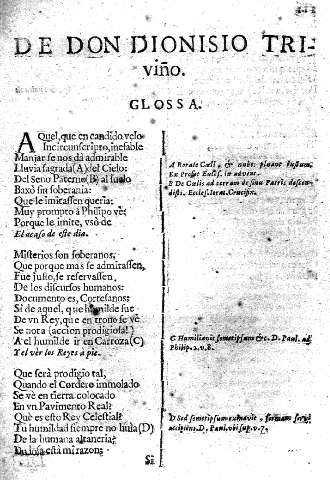 DE DON DIONISIO TRI-
viño.
GLOSSA.
AQuel, que en candido velo
Incircunscripto, inefable
Manjar se nos dà admirable
Lluvia sagrada(A) del Cielo:
Del Seno Paterno(B) al suelo
Baxò sin soberania:
Que le imitassen queria;
Muy prompto à Philipo vè;
Porque le imite, vsò de
El acaso de este dia.
Misterios son soberanos,
Que porque mas se admirassen,
Fue justo, se reservassen
De los discursos humanos:
Documento es, Cortesanos;
Si de aquel, que humilde fue
De vn Rey, que en trono se vè
Se nota (accion prodigiosa!)
A el humilde ir en Carroza(C)
Y el vèr los Reyes à pie.
Que serà prodigio tal,
Quando el Cordero immolado
Se vè en tierra colocado
En vn Pavimento Real?
Què es esto Rey Celestial?
Tu humildad siempre no huía(D)
De la humana altaneria?
En esta està mi razon;
Si
A Rorate Cœli, & nubes pluant Iustum.
Ex Profet. Eccles. in advent.
B De Cœlis ad terram de sinu Patris descendistis. Eccles. Iorat. Crucifix.
C Humiliavit semetipsum &c. D. Paul. ad
Philip. 2. v. 8.
D Sed semetipsum exinavit, formam servi
accipiens. D. Paul. vbi sup. v. 7.